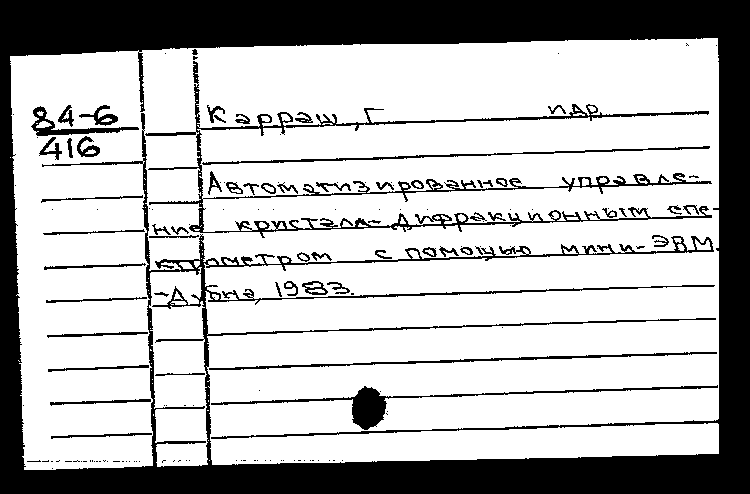 84-6
416
Карраш, Г и др.
Автоматизированное управле-
ние кристалл-дифракционным спе-
ктрометром с помощью мини-ЭВМ.
-Дубна, 1983.